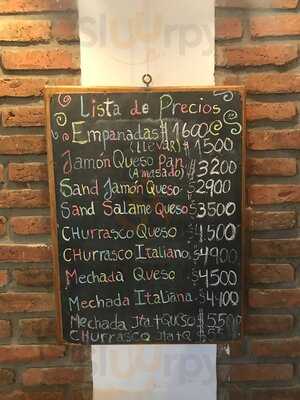 Sluurpy
Lista de Precios
Empanadas $1600
(Llevar) $1500
Jamón Queso Pan $3200
(Amasado)
Sand Jamón Queso $2900
Sand Salame Queso $3500
CHurrasco Queso $4500
CHurrasco Italiano $4900
Mechada Queso $4500
Mechada Italiana $4400
Mechada Ita+Queso $5500
CHurrasco Ita+Q
Sluurpy